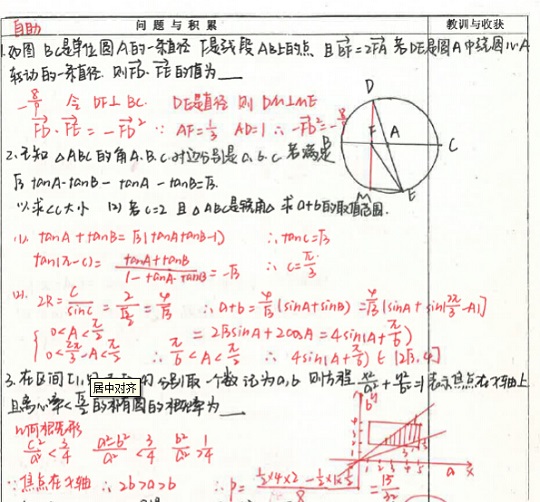 自助
问题与积累
教训与收获
1.如图 BC是单位圆A的一条直径 F是线段AB上的点 且BF=2FA 若DE是圆A中绕圆心A
转动的一条直径. 则FD·FE的值为__
-8/9 令 DF⊥BC. DE是直径 则 DM⊥ME
FD·FE = -FD² ∵ AF=1/3 AD=1 ∴ -FD²=-8/9
D
F
A
C
M
E
2.已知 △ABC的角A.B.C.对边分别是a.b.c 若满足
√3 tanA·tanB - tanA - tanB=√3.
(1)求∠C大小 (2)若c=2 且△ABC是锐角△ 求a+b的取值范围.
(1) tanA+tanB=√3(tanAtanB-1) ∴tanC=√3
tan(π-C)= (tanA+tanB)/(1-tanA·tanB) = -√3 ∴ C=π/3
(2). 2R=c/sinC = 2/(√3/2) = 4/√3 ∴a+b=4/√3(sinA+sinB)=4/√3[sinA+sin(2π/3-A)]
{ 0<A<π/2 = 2√3sinA+2cosA=4sin(A+π/6)
0<2π/3-A<π/2 ∴ π/6<A<π/2 ∴ 4sin(A+π/6)∈(2√3,4]
3.在区间[1, 分别取一个数记为a,b 则方程x²/a²+y²/b²=1表示焦点在x轴上
居中对齐
且离心率<√3/2的椭圆的概率为__
几何概型
c²/a²<3/4 (a²-b²)/a²<3/4 b²/a²>1/4
∵焦点在x轴 ∴2b>a>b ∴P=(1/2×4×2-1/2×1× /8 =15/32
b
a
x